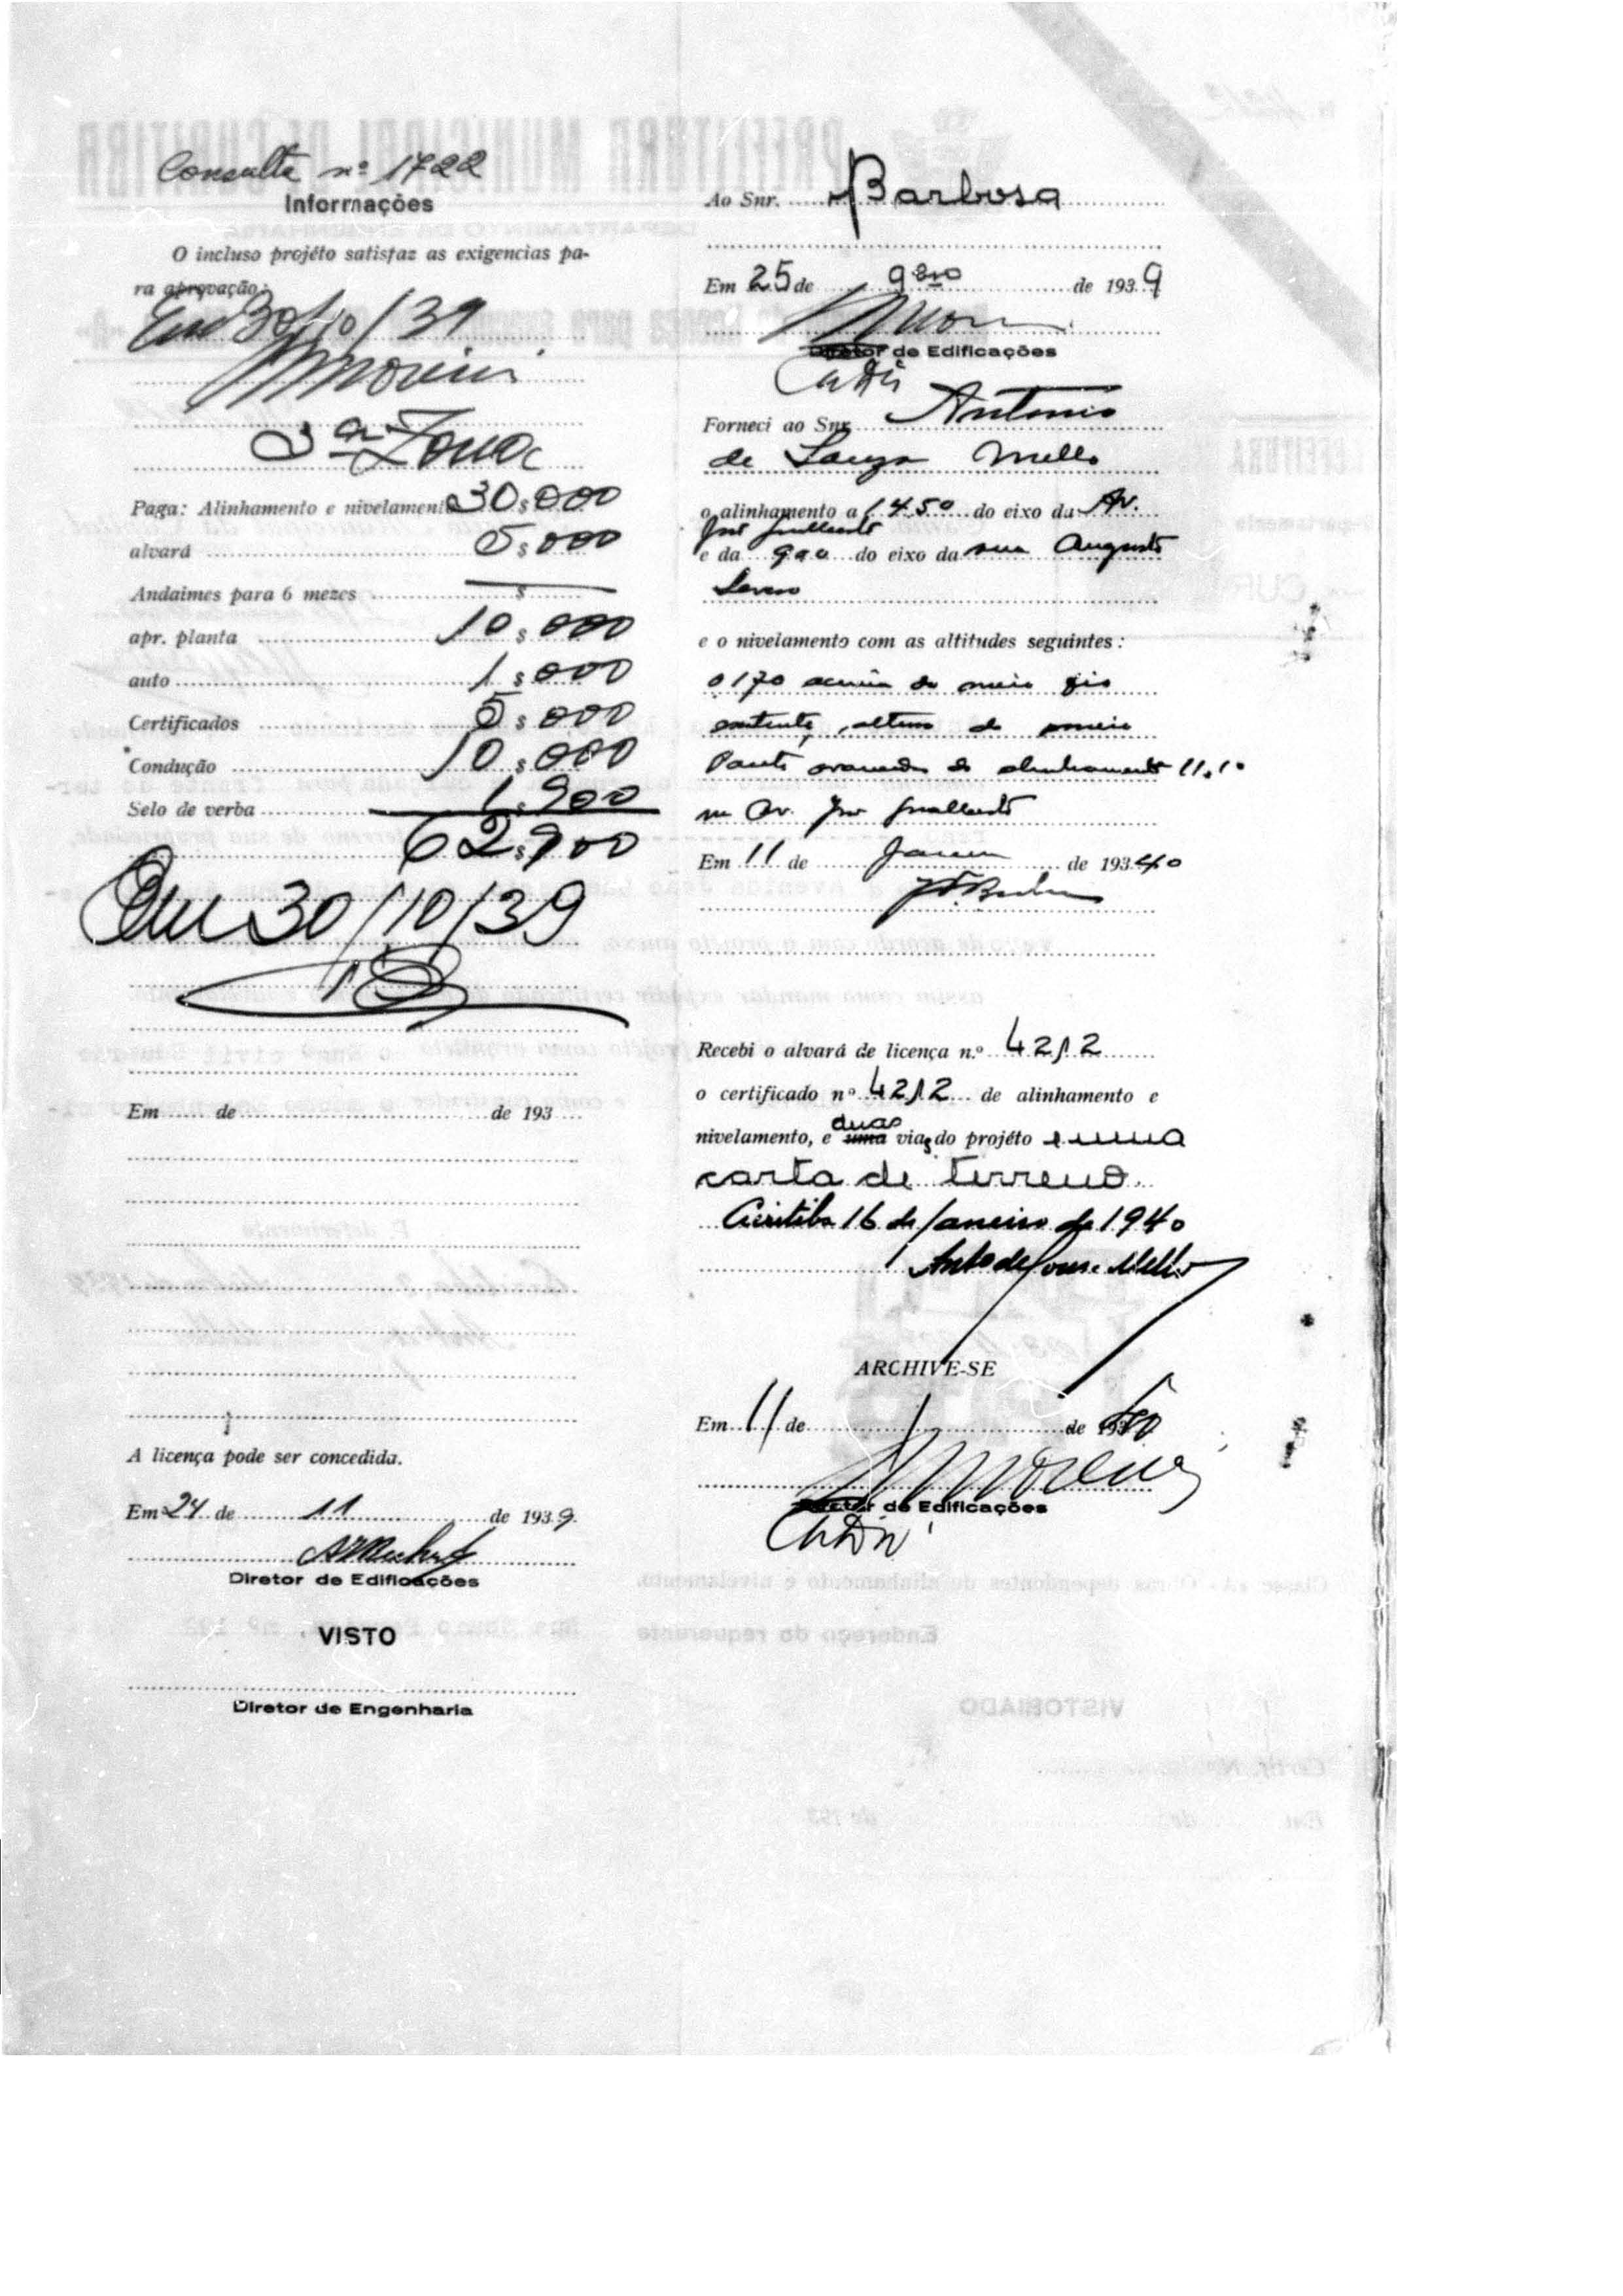 Consulta nº 1722
Informações
O incluso projéto satisfaz as exigencias pa-
ra aprovação:
Em 30/10/39
Moreira
3ª Zona
Paga: Alinhamento e nivelamento 30$000
alvará 5$000
Andaimes para 6 mezes $
apr. planta 10$000
auto 1$000
Certificados 5$000
Condução 10$000
Selo de verba 1.900
62$900
Em 30/10/39
Em de de 193
A licença pode ser concedida.
Em 24 de 11 de 1939.
Diretor de Edificações
VISTO
Diretor de Engenharia
Ao Snr. Barbosa
Em 25 de 9bro de 1939
Diretor de Edificações
Forneci ao Snr. Antonio
de Souza Mello
o alinhamento a 14.50 do eixo da Av.
e da 9,00 do eixo da rua Augusto
e o nivelamento com as altitudes seguintes:
0,170 acima do meio fio
existente, altura do
do alinhamento 11,10
na Av.
Em 11 de de 19340
Recebi o alvará de licença n.º 4212
o certificado nº 4212 de alinhamento e
nivelamento, e uma duas vias do projéto e uma
carta de terreno.
Curitiba 16 de Janeiro de 1940
Antº de Souza Mello
ARCHIVE-SE
Em 11 de 1 de 1940
Moreira
Diretor de Edificações